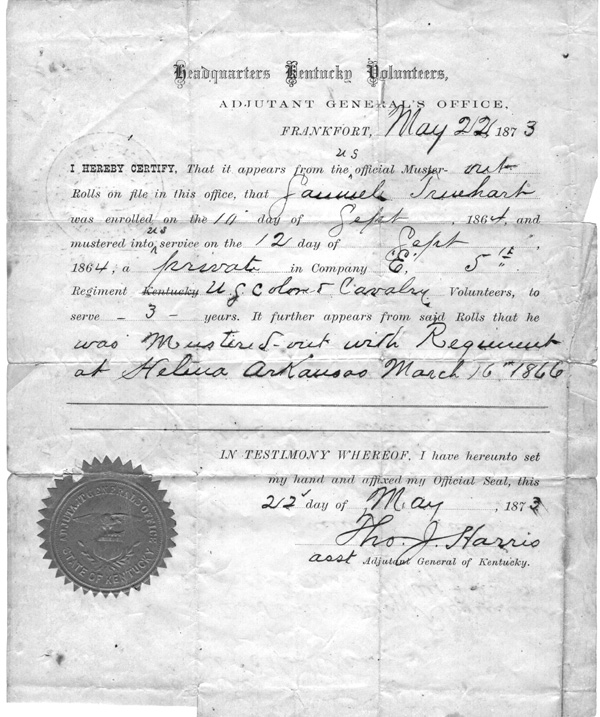 Headquarters Kentucky Volunteers,
ADJUTANT GENERAL'S OFFICE,
FRANKFORT, May 22, 1873
US
I HEREBY CERTIFY, That it appears from the official Muster-out
Rolls on file in this office, that Samuel Truehart
was enrolled on the day of Sept , 1864, and
us
mustered into service on the 12 day of Sept "
1864, a private in Company E, 5th
Regiment Kentucky U.S. Colored Cavalry Volunteers, to
serve - 3 - years. It further appears from said Rolls that he
was Mustered-out with Regiment
at Helena Arkansas March 16th 1866
IN TESTIMONY WHEREOF, I have hereunto set
my hand and affixed my Official Seal, this
22d day of May , 1873
Tho. J. Harris
asst Adjutant General of Kentucky.
ADJUTANT GENERAL'S OFFICE
STATE OF KENTUCKY